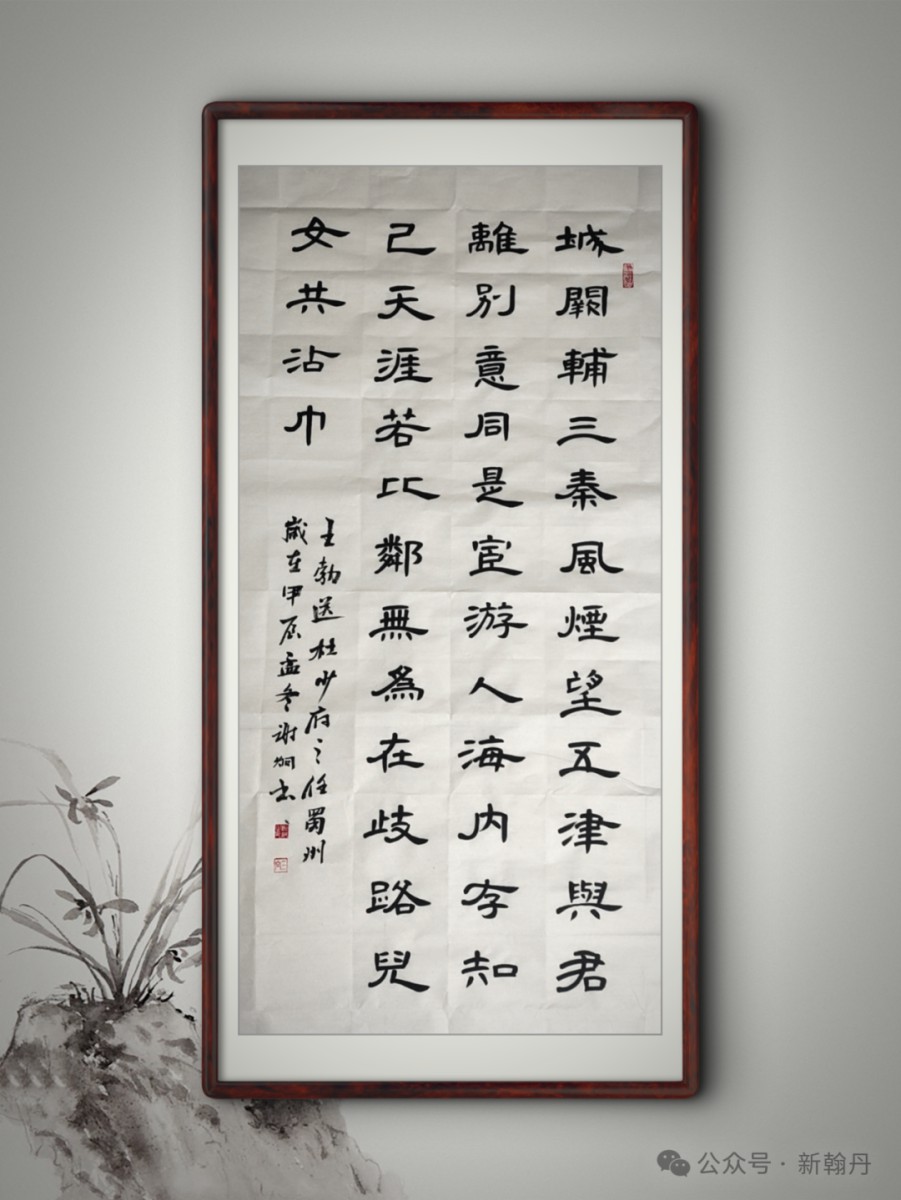 城闕輔三秦風煙望五津與君
離別意同是宦游人海内存知
己天涯若比鄰無為在歧路兒
女共沾巾
王勃送杜少府之任蜀州
歲在甲辰孟冬谢炯书
公众号 · 新翰丹